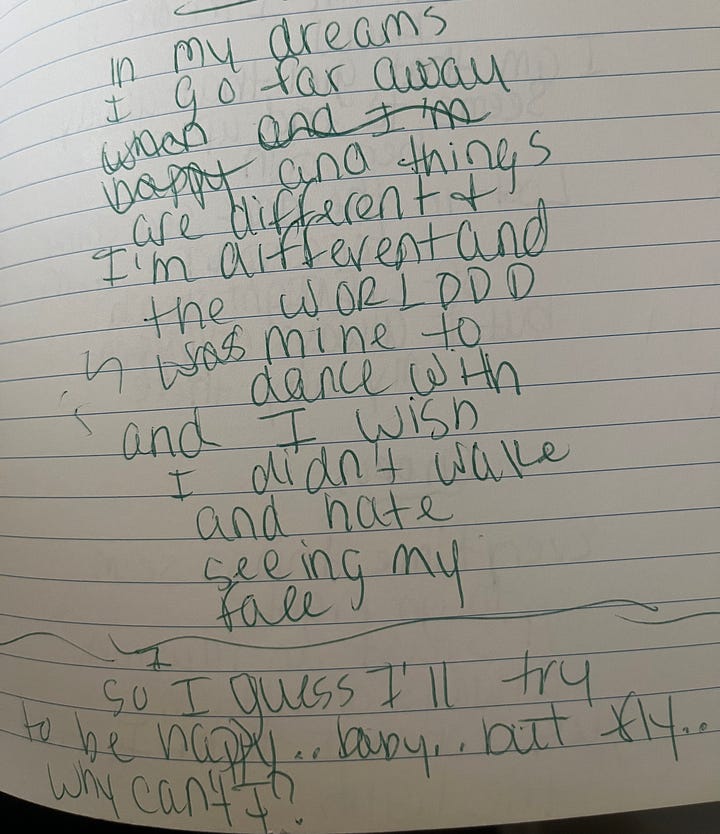 In my dreams
I go far away
when and I'm
happy and things
are different &
I'm different and
the WORLDDD
was mine to
dance with
and I wish
I didn't wake
and hate
seeing my
face
so I guess I'll try
to be happy.. baby.. but
why can't I?